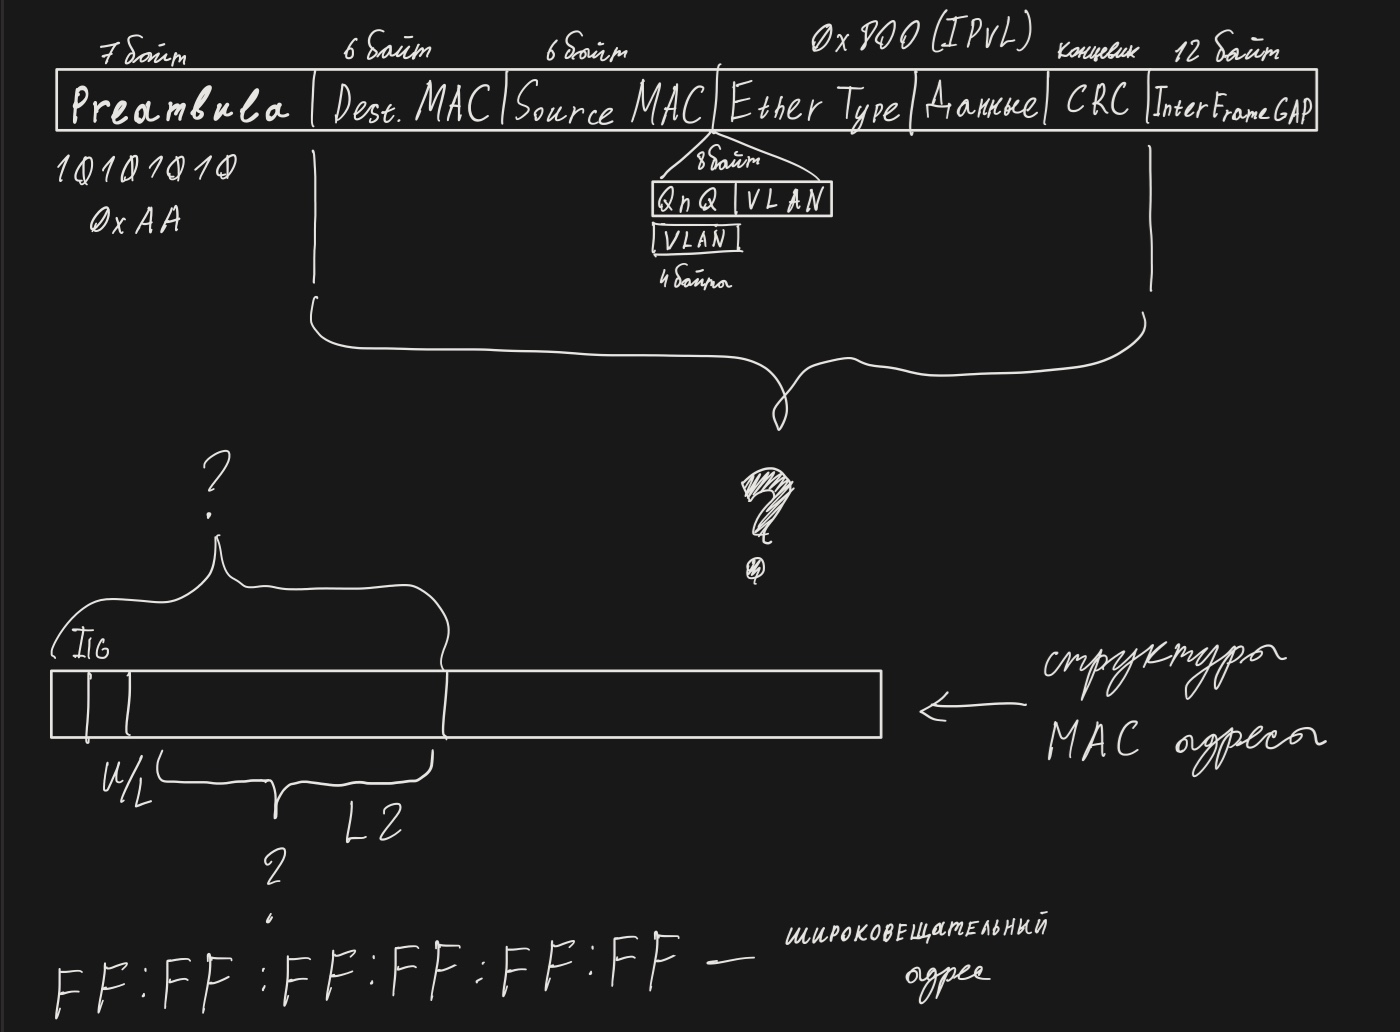 7 байт 6 байт 6 байт 0x800 (IPvL) концевик 12 байт
Preambula Dest. MAC Source MAC Ether Type Данные CRC InterFrameGAP
10101010 8 байт
0xAA QnQ VLAN
VLAN
4 байта
?
?
I/G
структура
MAC адреса
U/L
L2
?
FF:FF:FF:FF:FF:FF — широковещательный
адрес